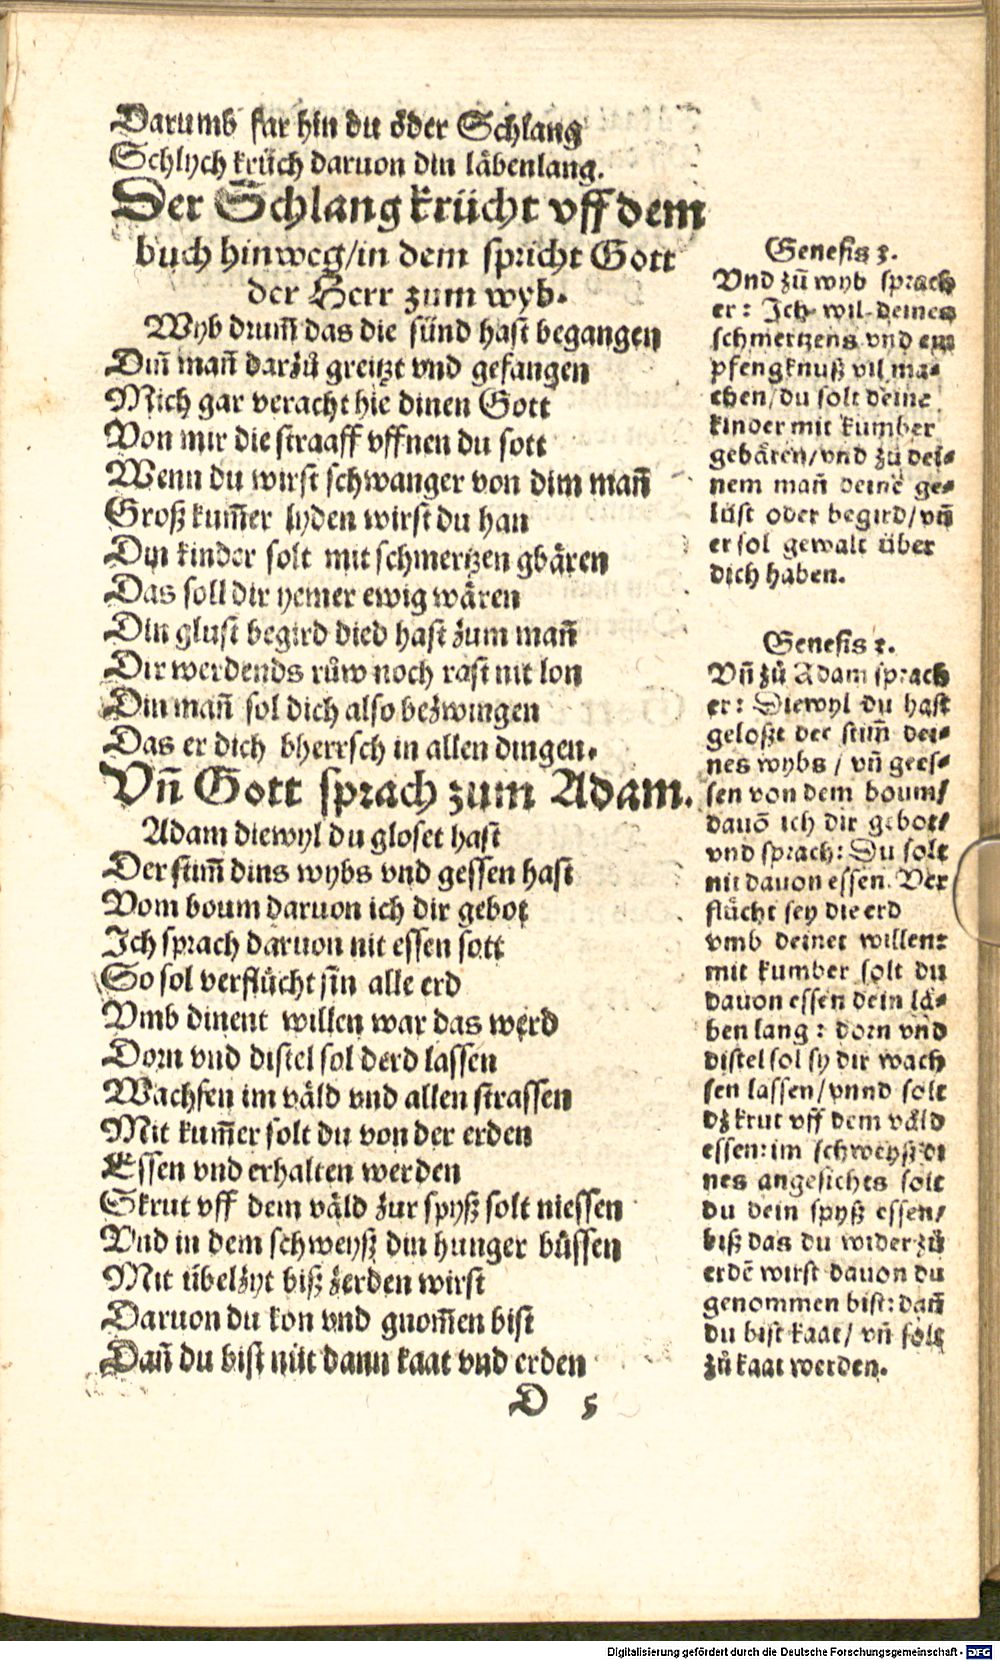 Darumb far hin du öder Schlang
Schlych krüch daruon din läbenlang.
Der Schlang krücht vff dem
buch hinweg/in dem spricht Gott
der Herr zum wyb.
Wyb drum̃ das die sünd hast begangen
Din̄ man̄ darzů greitzt vnd gefangen
Mich gar veracht hie dinen Gott
Von mir die straaff vffnen du sott
Wenn du wirst schwanger von dim man̄
Groß kum̃er lyden wirst du han
Din kinder solt mit schmertzen gbären
Das soll dir yemer ewig wären
Din glust begird died hast zum man̄
Dir werdends růw noch rast nit lon
Din man̄ sol dich also bezwingen
Das er dich bherrsch in allen dingen.
Vn̄ Gott sprach zum Adam.
Adam diewyl du gloset hast
Der stim̃ dins wybs vnd gessen hast
Vom boum daruon ich dir gebot
Ich sprach daruon nit essen sott
So sol verflücht sin alle erd
Vmb dinent willen war das werd
Dorn vnd distel sol derd lassen
Wachsen im väld vnd allen strassen
Mit kum̃er solt du von der erden
Essen vnd erhalten werden
Skrut vff dem väld zur spyß solt niessen
Vnd in dem schweyß din hunger büssen
Mit übelzyt biß zerden wirst
Daruon du kon vnd gnom̃en bist
Dan̄ du bist nüt dann kaat vnd erden
D 5
Genesis 3.
Vnd zů wyb sprach
er: Ich wil deines
schmertzens vnd em
pfengknuß vil ma-
chen/du solt deine
kinder mit kumber
gebären/vnd zů dei-
nem man̄ deine ge-
lüst oder begird/vn̄
er sol gewalt über
dich haben.
Genesis 3.
Vn̄ zů Adam sprach
er: Diewyl du hast
geloßt der stim̃ dei-
nes wybs / vn̄ gees-
sen von dem boum/
dauō ich dir gebot/
vnd sprach: Du solt
nit dauon essen. Ver
flücht sey die erd
vmb deinet willen:
mit kumber solt du
dauon essen dein lä-
ben lang: dorn vnd
distel sol sy dir wach
sen lassen/vnnd solt
dz krut vff dem väld
essen: im schweyß di
nes angesichts solt
du dein spyß essen/
biß das du wider zů
erdē wirst dauon du
genommen bist: dan̄
du bist kaat/ vn̄ solt
zů kaat werden.
Digitalisierung gefördert durch die Deutsche Forschungsgemeinschaft - DFG